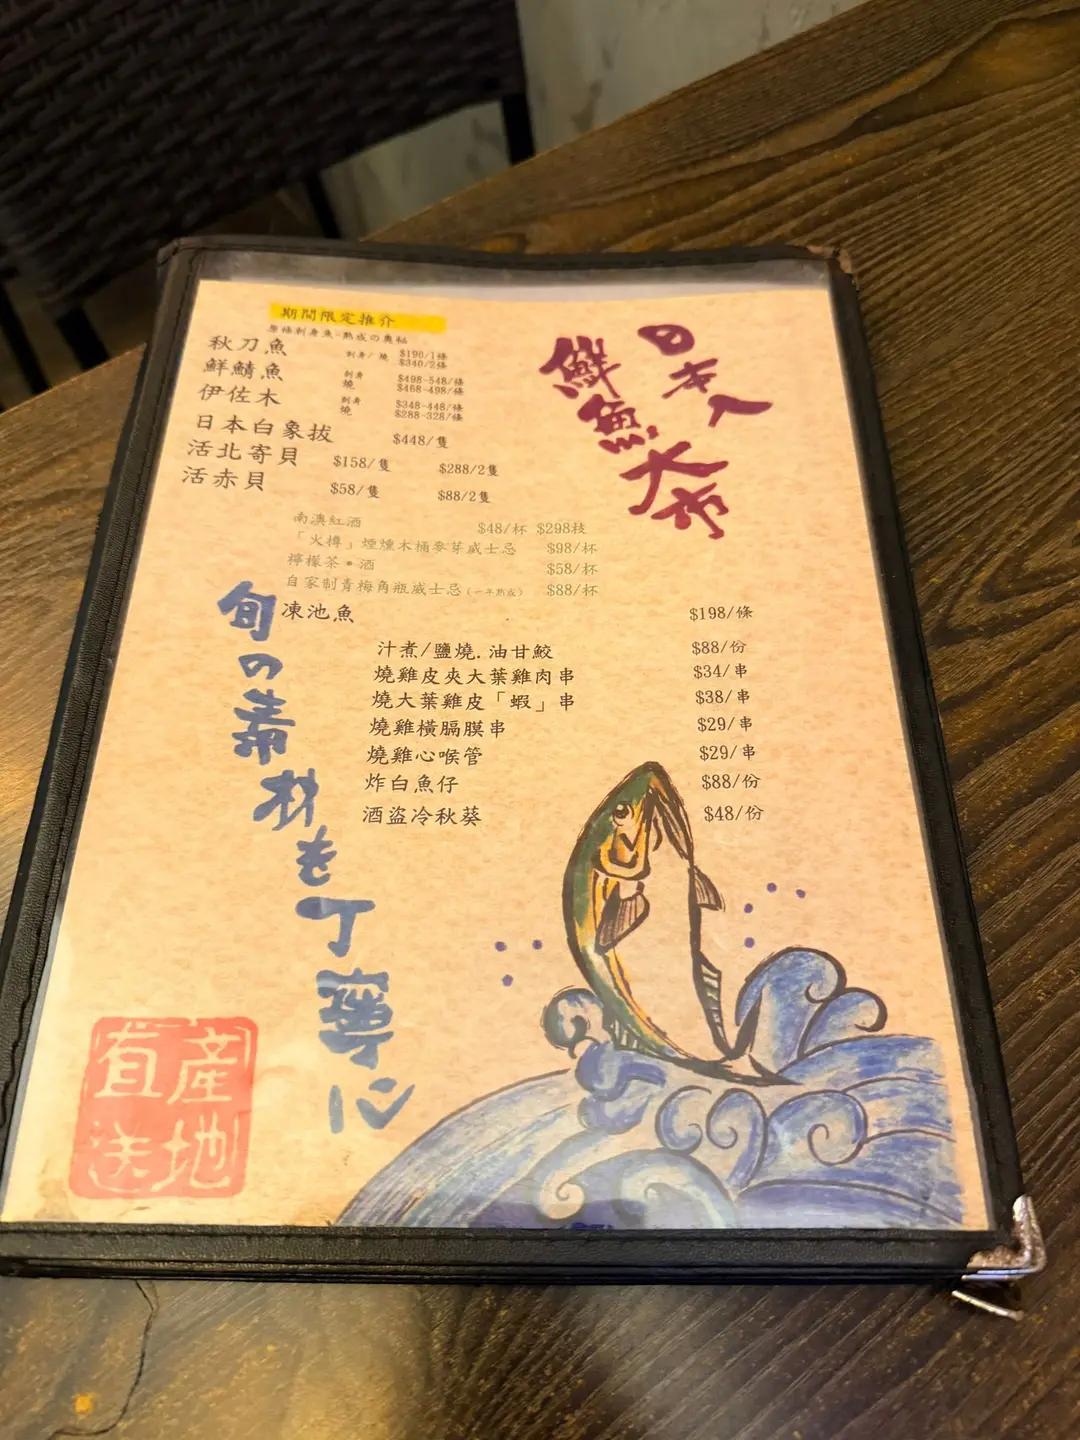 期間限定推介
原條刺身魚-熟成の奧秘
秋刀魚 刺身/燒 $196/1條
$340/2條
鮮鯖魚 刺身 $498-548/條
燒 $468-498/條
伊佐木 刺身 $348-448/條
燒 $288-328/條
日本白象拔 $448/隻
活北寄貝 $158/隻 $288/2隻
活赤貝 $58/隻 $88/2隻
日本入
鮮魚大市
南澳紅酒 $48/杯 $298枝
「火樽」煙燻木桶麥芽威士忌 $98/杯
檸檬茶•酒 $58/杯
自家制青梅角瓶威士忌(一年熟成) $88/杯
凍池魚 $198/條
汁煮/鹽燒.油甘鮫 $88/份
燒雞皮夾大葉雞肉串 $34/串
燒大葉雞皮「蝦」串 $38/串
燒雞橫膈膜串 $29/串
燒雞心喉管 $29/串
炸白魚仔 $88/份
酒盜冷秋葵 $48/份
旬の素材を丁寧に
産地
直送